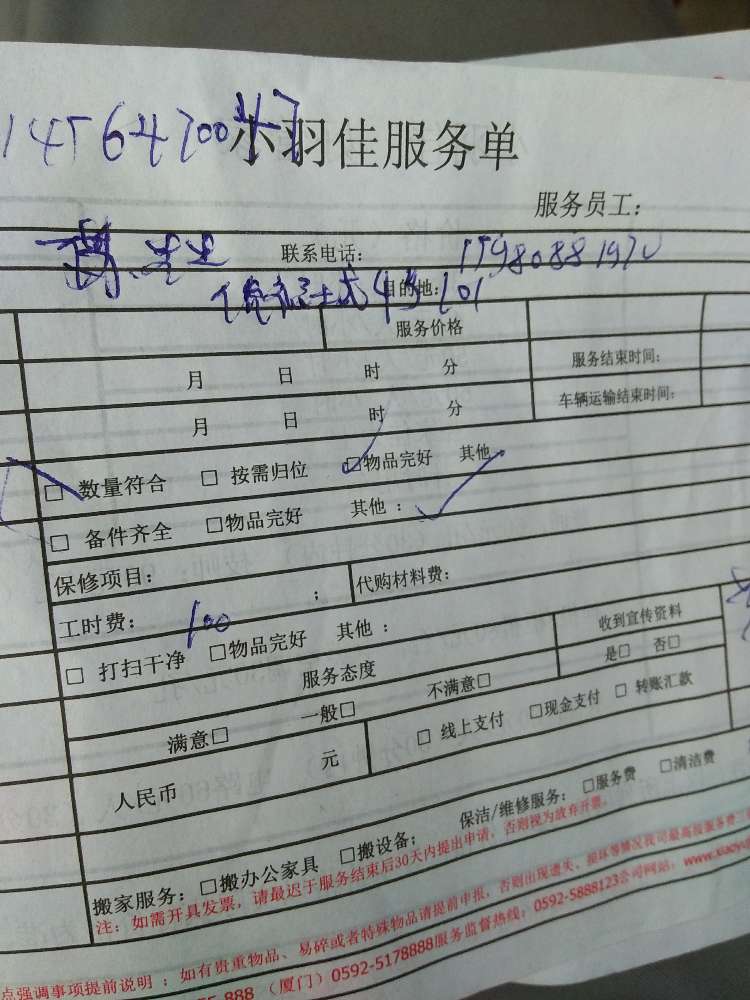 14564700
小羽佳服务单
服务员工：
先生 联系电话：
目的地： 4号101
服务价格
月 日 时 分 服务结束时间：
月 日 时 分 车辆运输结束时间：
□ 数量符合 □ 按需归位 □物品完好 其他
□ 备件齐全 □物品完好 其他：
保修项目： 代购材料费：
工时费： 100 ；
□ 打扫干净 □物品完好 其他： 收到宣传资料
服务态度 是□ 否□
满意□ 一般□ 不满意□
人民币 元 □ 线上支付 □现金支付 □ 转账汇款
搬家服务：□搬办公家具 □搬设备； 保洁/维修服务：□服务费 □清洁费
注：如需开具发票，请最迟于服务结束后30天内提出申请，否则视为放弃开票。
点强调事项提前说明：如有贵重物品、易碎或者特殊物品请提前申报，否则出现遗失、损坏等情况我司最高按服务费三
888（厦门）0592-5178888服务监督热线：0592-5888123公司网站：www.xiaoyu